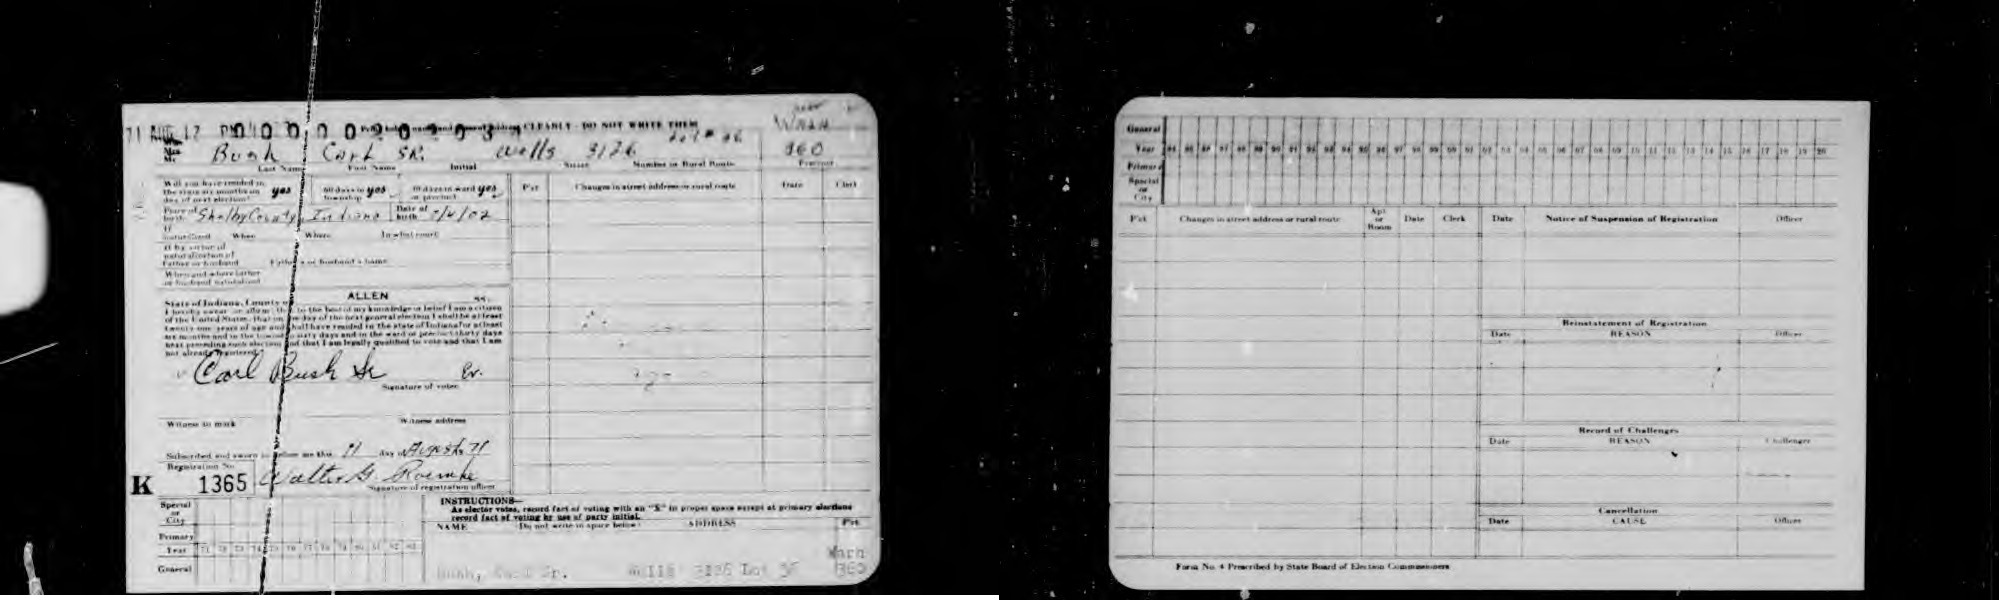 71 AUG 17 PM
CLEARLY - DO NOT WRITE THEM
Bush Carl SR. Wells 3126 160
Last Name First Name Initial Street Number or Rural Route Precinct
Will you have resided in the state six months on day of next election? yes 60 days in township yes 30 days in ward or precinct yes
Pct Changes in street address or rural route Date Clerk
Place of birth Shelby County, Indiana Date of birth
If naturalized When Where In what court
If by virtue of naturalization of Father or husband Father's or husband's name
When and where father or husband naturalized
State of Indiana, County of ALLEN ss.
I hereby swear or affirm that to the best of my knowledge or belief I am a citizen
of the United States, that on the day of the next general election I shall be at least
twenty-one years of age and shall have resided in the state of Indiana for at least
six months and in the township sixty days and in the ward or precinct thirty days
next preceding such election and that I am legally qualified to vote and that I am
not already registered.
Carl Bush Sr
Signature of voter
Witness to mark Witness address
Subscribed and sworn to before me this day of August 71
Registration No.
K 1365 Walter G. Roemke
Signature of registration officer
INSTRUCTIONS—
As elector votes, record fact of voting with an "X" in proper space except at primary elections
record fact of voting by use of party initial.
NAME Do not write in space below: ADDRESS Pct.
Special or City
Primary
Year 71 72 73 74 75 76 77 78 79 80 81 82 83
General
Bush, Carl Sr. Wells 3126 Lot Warn 160
General
Year 84 85 86 87 88 89 90 91 92 93 94 95 96 97 98 99 00 01 02 03 04 05 06 07 08 09 10 11 12 13 14 15 16 17 18 19 20
Primary
Special or City
Pct Changes in street address or rural route Apt or Room Date Clerk Date Notice of Suspension of Registration Officer
Reinstatement of Registration
Date REASON Officer
Record of Challenges
Date REASON Challenger
Cancellation
Date CAUSE Officer
Form No. 4 Prescribed by State Board of Election Commissioners